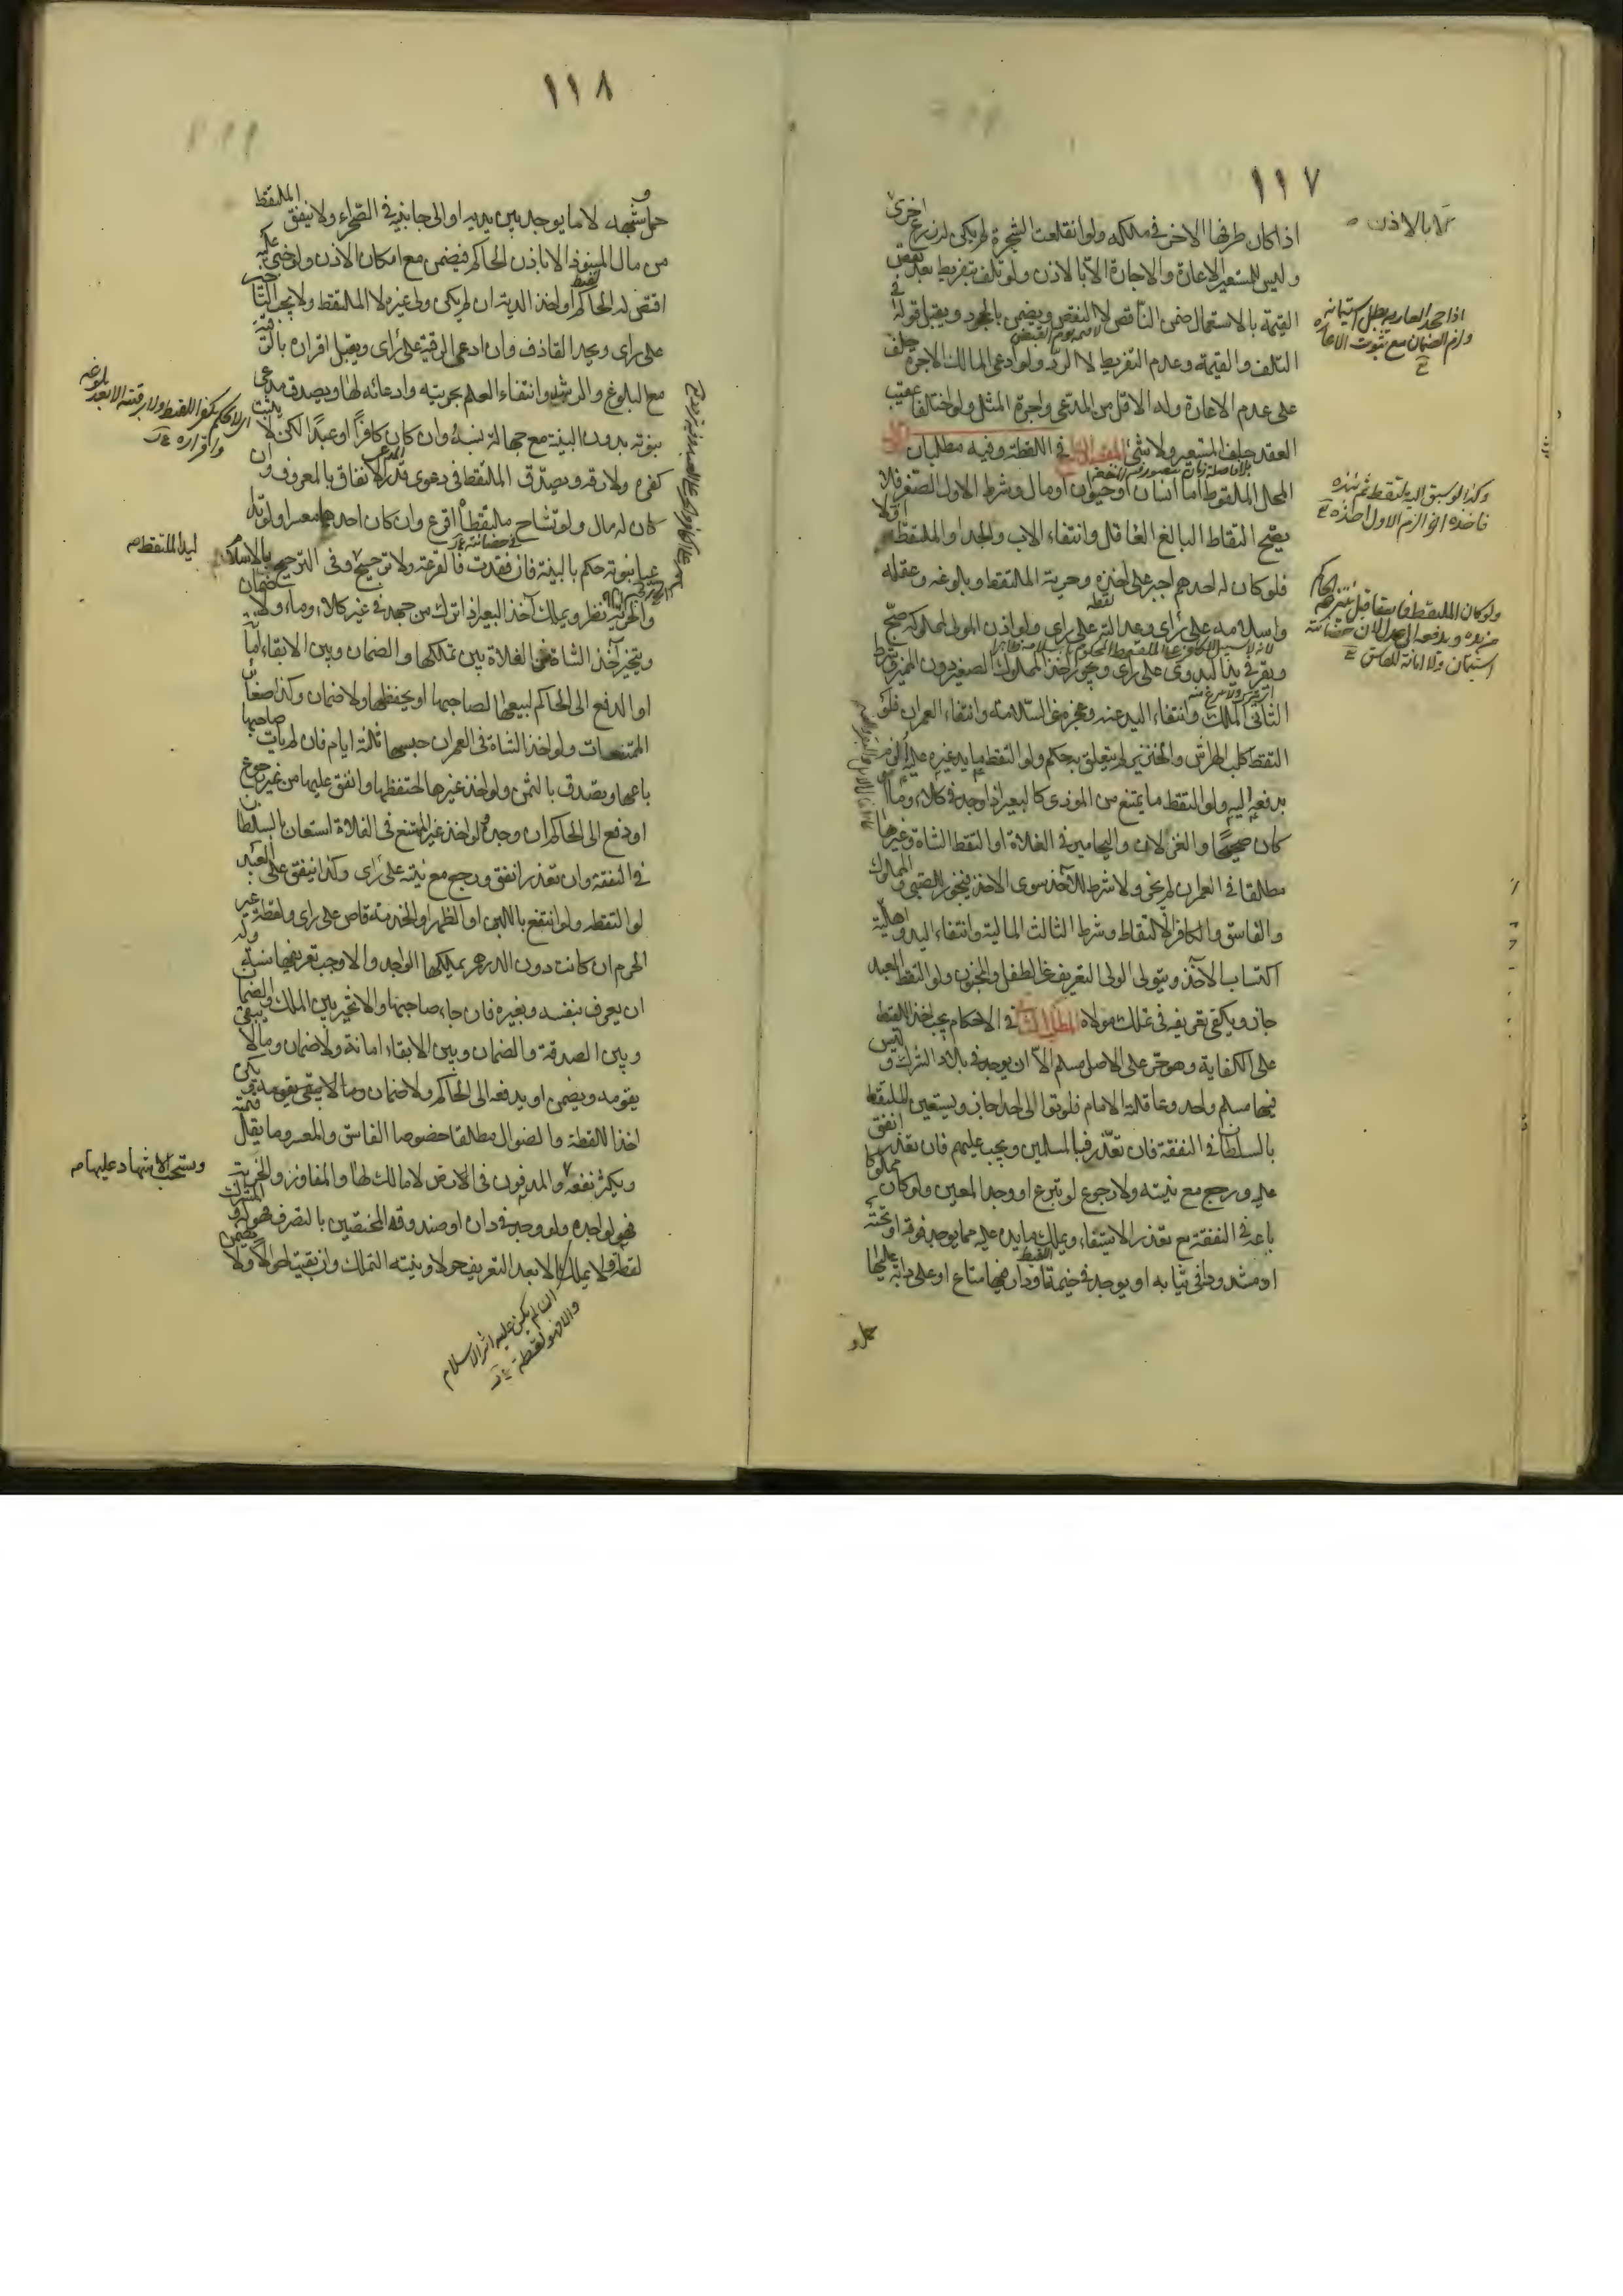 ١١٧
اذا كان طرفها الاخر في ملكه ولو انقلعت الشجرة لم يكن له زرع اخرى
وليس للمستعير الاعارة والاجارة الا بالاذن ولو تلف بتفريط بعد نقص
القيمة بالاستعمال ضمن الناقص لا النقص ويضمن بالجحود ويقبل قوله في
التلف والقيمة وعدم التفريط لا الرد ولو ادعى المالك الاجرة حلف
على عدم الاعارة وله الاقل من المدعى واجرة المثل ولو اختلفا عقيب
العقد حلف المستعير ولا شئ المقصد في اللقطة وفيه مطلبان
المحل الملقوط اما انسان او حيوان او مال وشرط الاول الصغر فلا
يصح التقاط البالغ العاقل وانتفاء الاب والجد او الملتقط اولا
فلو كان له احدهم اجبر على اخذه وحرية الملتقط وبلوغه وعقله
واسلامه على رأى وعدالته على رأى ولو اذن المولى لمملوكه صح
ويقر في يد البدوى على رأى ويجوز اخذ المملوك الصغير دون المميز وشرط
الثانى الملك وانتفاء اليد عنه وعجزه عن السلامة وانتفاء العمران فلو
التقط كلب الهراش والخنزير لم يتعلق به حكم ولو التقط ما يد غيره عليه الزم
بدفعه اليه ولو التقط ما يمتنع من الموذى كالبعير اذا وجد في كلاء وماء
كان صحيحا والغزلان واليحامير في الفلاة او التقط الشاة وغيرها
مطلقا في العمران لم يجز ولا شرط للآخذ سوى الاخذ فيجوز للصبى والمملوك
والفاسق والكافر الالتقاط وشرط الثالث المالية وانتفاء اليد واهلية
اكتساب الآخذ ويتولى الولى التعريف عن الطفل والمجنون ولو التقط العبد
جاز ويكفى تعريفه في تملك مولاه المطلب في الاحكام يجب اخذ اللقيط
على الكفاية وهو حر على الاصل مسلم الا ان يوجد في بلاد الشرك وليس
فيها مسلم واحد وعاقلته الامام فلو توالى احدا جاز ويستعين الملتقط
بالسلطان في النفقة فان تعذر فبالمسلمين ويجب عليهم فان تعذر انفق
عليه ورجع مع نيته ولا رجوع لو تبرع او وجد المعين ولو كان مملوكا
باعه في النفقة مع تعذر الاستيفاء ويملك ما يده عليه مما يوجد فوقه او تحته
او مشدودا في ثيابه او يوجد في خيمة او دار فيها متاع او على دابة عليها
حمل و
الا بالاذن
اذا جحد العارية بطل استيمانه
ولزم الضمان مع ثبوت الاعارة
وكذا لو سبق اليه ملتقط ثم نبذه
فاخذه اخر الزم الاول اخذه
ولو كان الملتقط فاسقا قيل ينتزعه الحاكم
من يده ويدفعه الى عدل لان حضانته
استيمان ولا امانة للفاسق
١١٨
حمل وشبهه لا ما يوجد بين يديه او الى جانبيه في الصحراء ولا ينفق الملتقط
من مال المنبوذ الا باذن الحاكم فيضمن مع امكان الاذن ولو جنى عليه
اقتص له الحاكم او اخذ الدية ان لم يكن ولى غيره لا الملتقط ولا يجب التأخير
على راى ويحد القاذف وان ادعى الرقية على رأى ويقبل اقراره بالرقية
مع البلوغ والرشد وانتفاء العلم بحريته وادعائه لها ويصدق مدعى
بنوته بدون البينة مع جهالة نسبه وان كان كافرا او عبدا لكن لا يثبت
كفره ولا رقه ويصدق الملتقط في دعوى قدر الانفاق بالمعروف وان
كان له مال ولو تشاح ملتقطان اقرع وان كان احدهما معسرا ولو تداعيا
بنوته حكم بالبينة فان فقدت فالقرعة ولا ترجيح وفى الترجيح بالاسلام
والحرية نظر ويملك آخذ البعير اذا ترك من جهد في غير كلاء وماء ولا ضمان
ويتخير آخذ الشاة في الفلاة بين تملكها والضمان وبين الابقاء امانة
او الدفع الى الحاكم ليبيعها لصاحبها او يحفظها ولا ضمان وكذا صغار
الممتنعات ولو اخذ الشاة في العمران حبسها ثلثة ايام فان لم يأت صاحبها
باعها وتصدق بالثمن ولو اخذ غيرها احتفظها وانفق عليها من غير رجوع
او دفع الى الحاكم ان وجده ولو اخذ غير الممتنع في الفلاة استعان بالسلطان
في النفقة وان تعذر انفق ورجع مع نيته على رأى وكذا ينفق على العبد
لو التقطه ولو انتفع باللبن او الظهر او الخدمة قاص على راى ولقطة غير
الحرم ان كانت دون الدرهم يملكها الواجد والا وجب تعريفها سنة وله
ان يعرف بنفسه وبغيره فان جاء صاحبها والا تخير بين الملك والضمان
وبين الصدقة والضمان وبين الابقاء امانة ولا ضمان وما لا يبقى
يقومه ويضمن او يدفعه الى الحاكم ولا ضمان وما لا يبقى يقومه ويكره
اخذ اللقطة والضوال مطلقا خصوصا الفاسق والمعسر وما يقل قيمته
ويكثر نفعه والمدفون في الارض لا مالك لها والمفاوز والخربة
فهو لواجده ولو وجد في داره او صندوقه المختصين بالتصرف فهو له والمشترك
لقطة ولا يملك الا بعد التعريف حولا ونية التملك وان بقيت احوالا ولا يضمن
ان لم يكن عليه اثر الاسلام
والا فهو لقطة
اى لا يحكم بكفر اللقيط ولا برقيته الا بعد بلوغه
واقراره
ليد الملتقط
ويستحب الاشهاد عليها